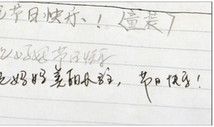 节日快乐！（童装）
妈妈节日快乐
妈妈美丽永驻，节日快乐！